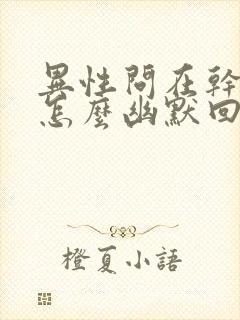 異性問在幹
怎麼幽默回
橙夏小語